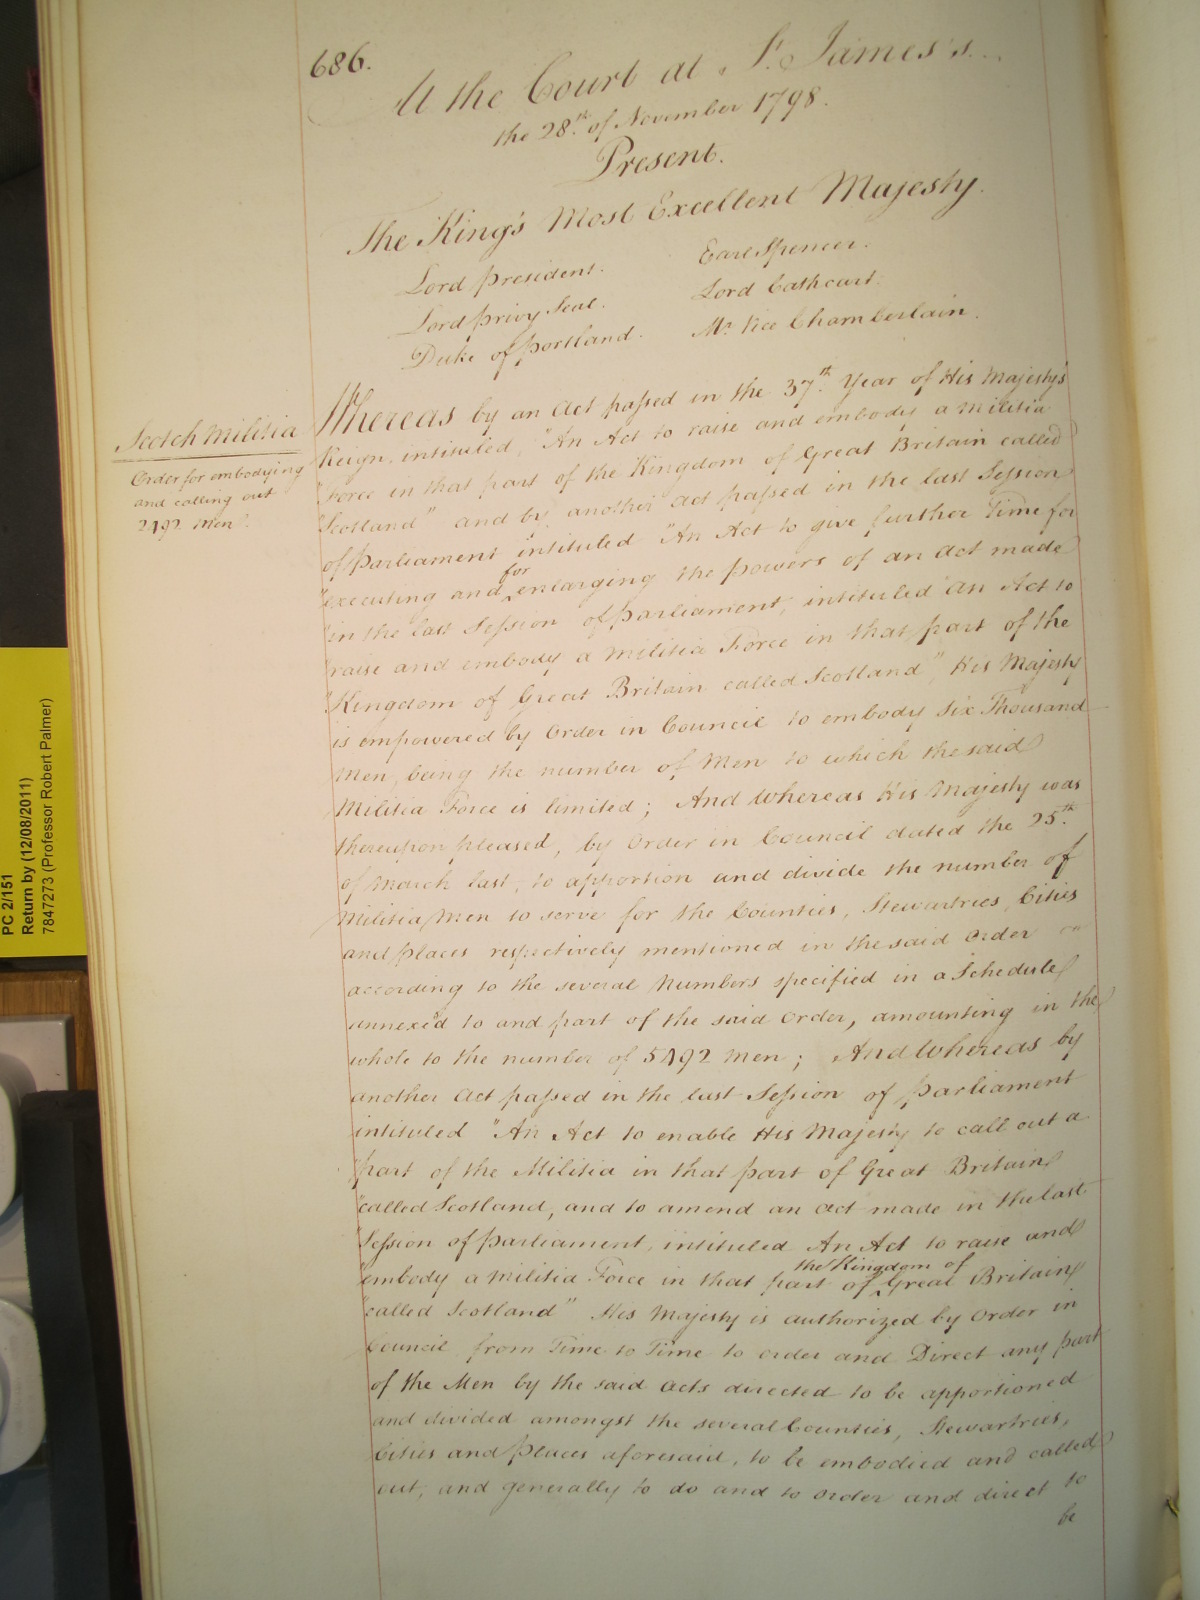 686.
At the Court at St. James's...
the 28th of November 1798.
Present.
The King's Most Excellent Majesty.
Lord President. Earl Spencer.
Lord Privy Seal. Lord Cathcart.
Duke of Portland. Mr. Vice Chamberlain.
Scotch Militia
Order for embodying
and calling out
2492 Men.
Whereas by an Act passed in the 37th Year of His Majesty's
Reign, intituled, "An Act to raise and embody a Militia
"Force in that part of the Kingdom of Great Britain called
"Scotland" and by another Act passed in the last Session
of Parliament intituled "An Act to give further Time for
"executing and for enlarging the Powers of an Act made
"in the last Session of Parliament, intituled An Act to
"raise and embody a Militia Force in that part of the
"Kingdom of Great Britain called Scotland", His Majesty
is empowered by Order in Council to embody Six Thousand
Men, being the number of Men to which the said
Militia Force is limited; And Whereas His Majesty was
thereupon pleased, by Order in Council dated the 25th
of March last, to apportion and divide the number of
Militia Men to serve for the Counties, Stewartries, Cities
and Places respectively mentioned in the said Order
according to the several Numbers specified in a Schedule
annexed to and part of the said Order, amounting in the
whole to the number of 5492 Men; And Whereas by
another Act passed in the last Session of Parliament
intituled "An Act to enable His Majesty to call out a
"part of the Militia in that part of Great Britain
"called Scotland, and to amend an Act made in the last
"Session of Parliament, intituled An Act to raise and
"embody a Militia Force in that part of the Kingdom of Great Britain
"called Scotland" His Majesty is authorized by Order in
Council from Time to Time to order and Direct any part
of the Men by the said Acts directed to be apportioned
and divided amongst the several Counties, Stewartries,
Cities and Places aforesaid, to be embodied and called
out, and generally to do and to order and direct to
be
PC 2/151
Return by (12/08/2011)
7847273 (Professor Robert Palmer)